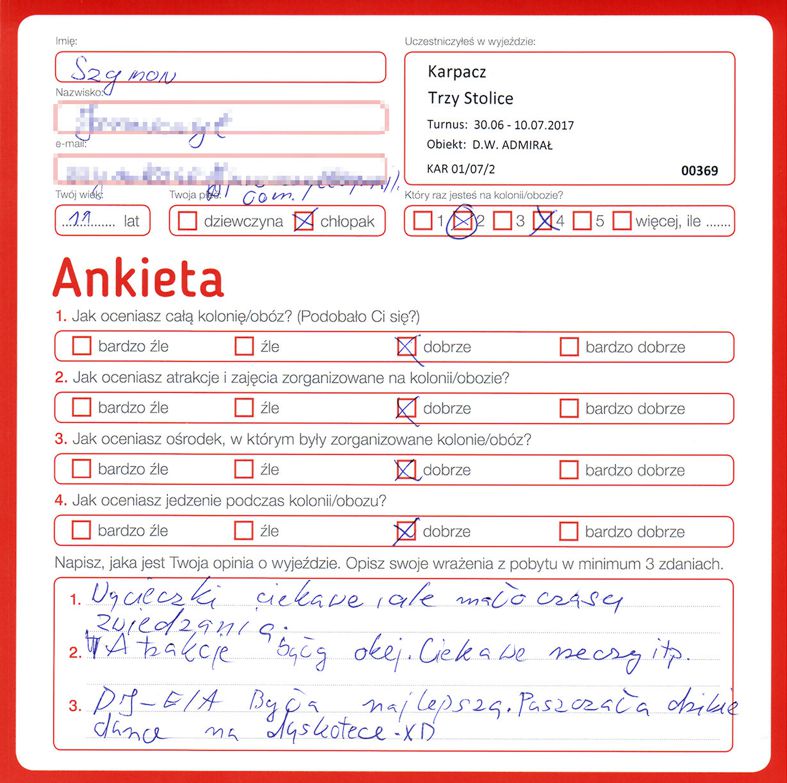 Imię:
Szymon
Nazwisko:
e-mail:
Uczestniczyłeś w wyjeździe:
Karpacz
Trzy Stolice
Turnus: 30.06 - 10.07.2017
Obiekt: D.W. ADMIRAŁ
KAR 01/07/2 00369
Twój wiek:
11 lat
Twoja płeć:
com/
dziewczyna chłopak
Który raz jesteś na kolonii/obozie?
1 2 3 4 5 więcej, ile .......
Ankieta
1. Jak oceniasz całą kolonię/obóz? (Podobało Ci się?)
bardzo źle źle dobrze bardzo dobrze
2. Jak oceniasz atrakcje i zajęcia zorganizowane na kolonii/obozie?
bardzo źle źle dobrze bardzo dobrze
3. Jak oceniasz ośrodek, w którym były zorganizowane kolonie/obóz?
bardzo źle źle dobrze bardzo dobrze
4. Jak oceniasz jedzenie podczas kolonii/obozu?
bardzo źle źle dobrze bardzo dobrze
Napisz, jaka jest Twoja opinia o wyjeździe. Opisz swoje wrażenia z pobytu w minimum 3 zdaniach.
1. Wycieczki ciekawe, ale mało czasu
zwiedzania.
2. Atrakcje były okej. Ciekawe rzeczy itp.
3. DJ-E/A Była najlepsza. Puszczała dzikie
dance na dyskotece. XD